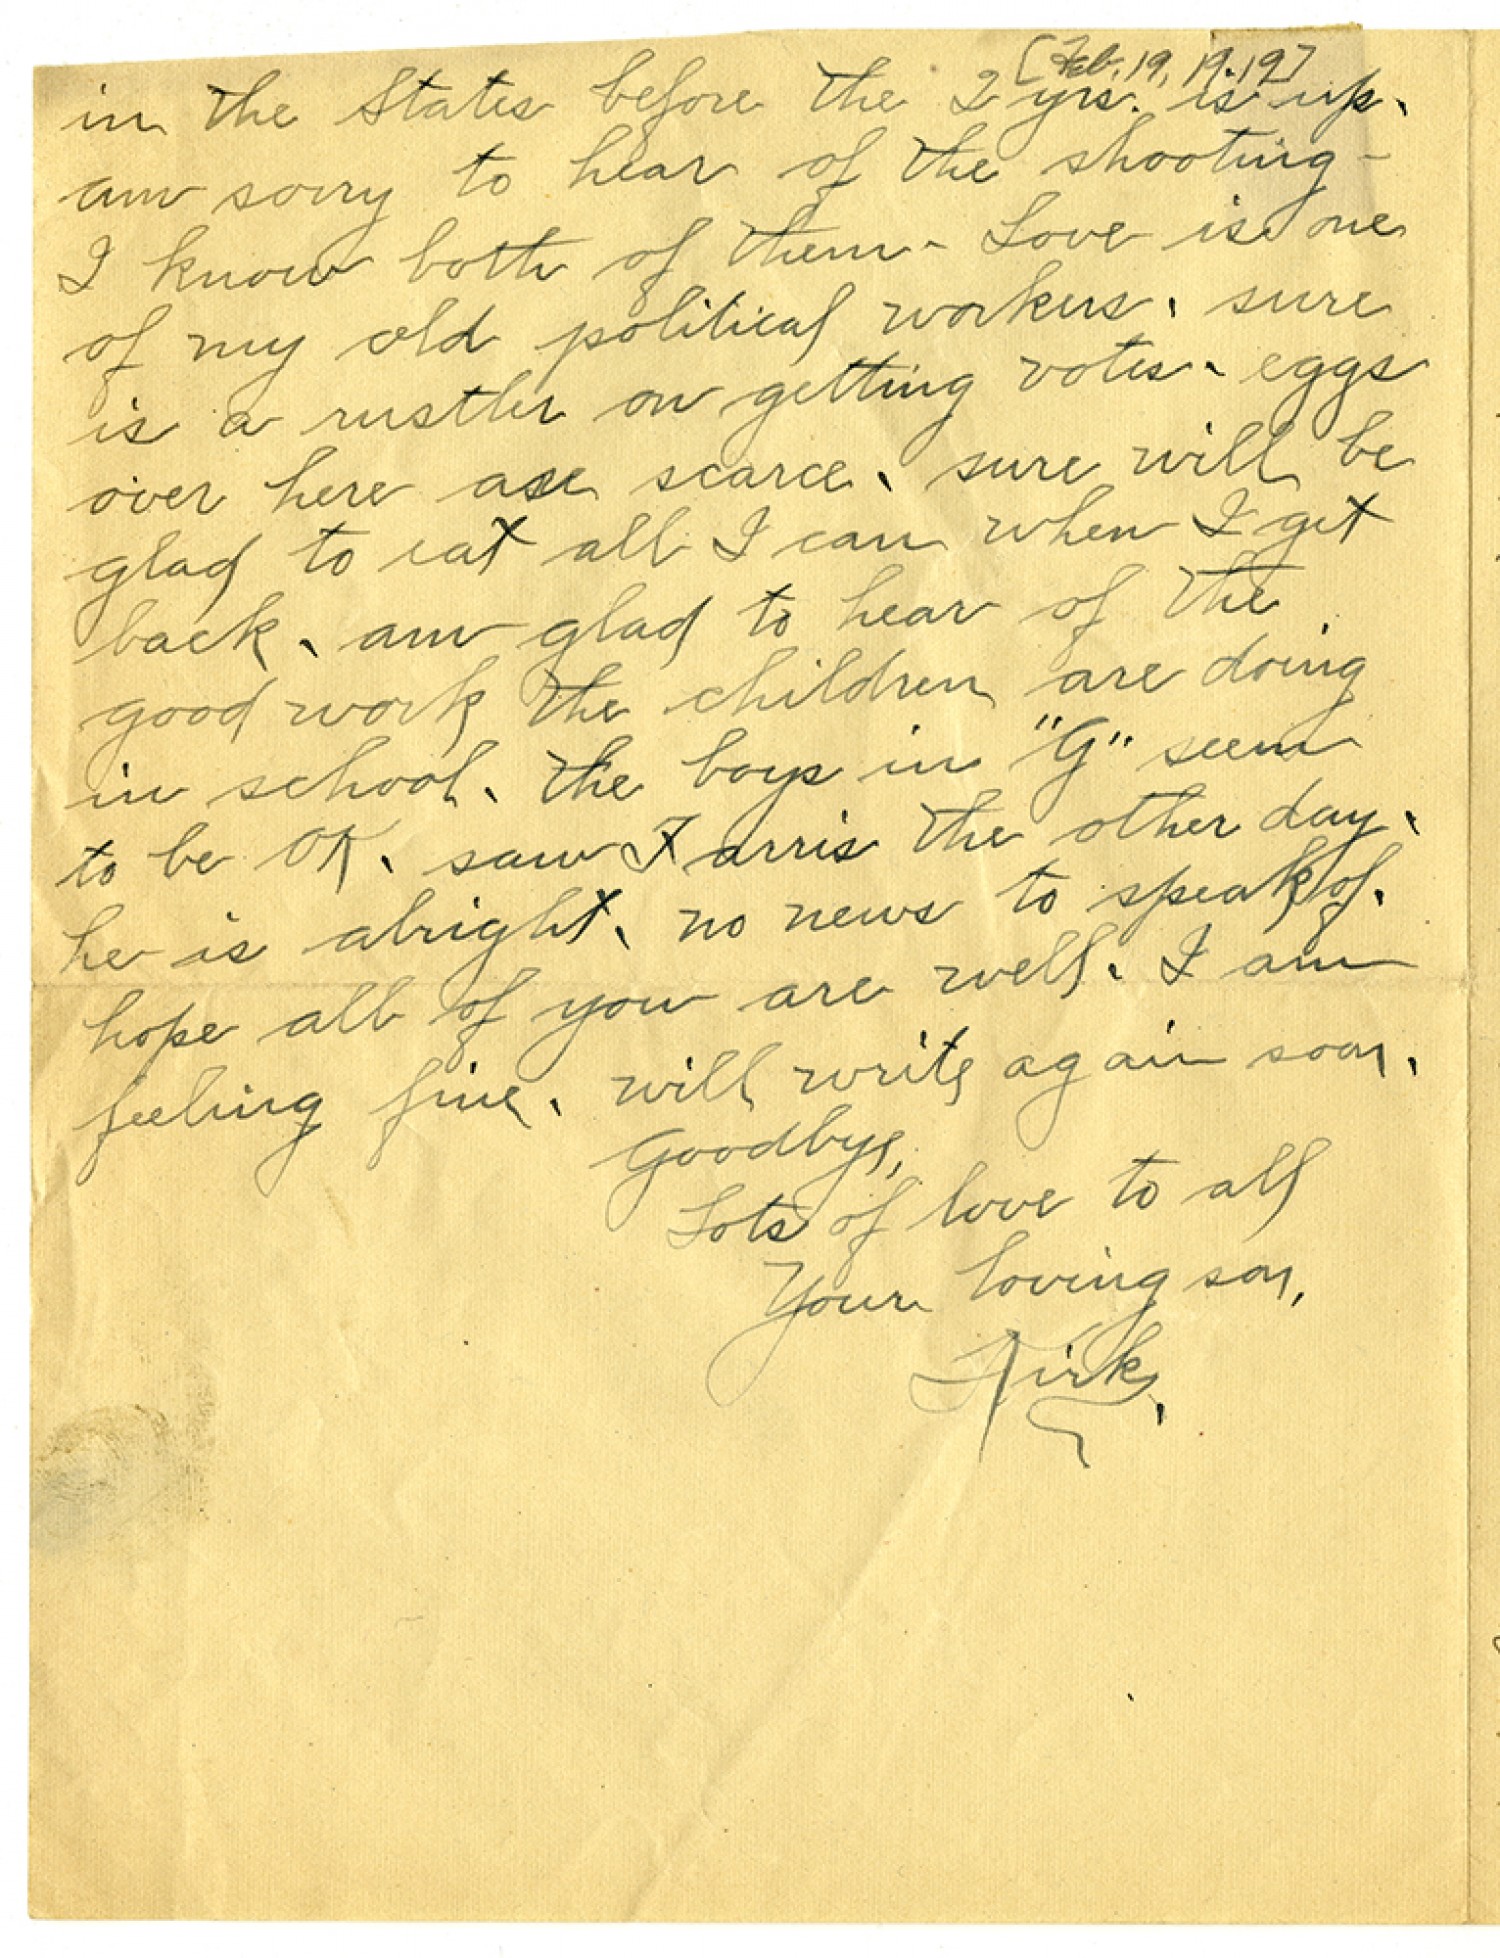 [Feb. 19, 1919]
in the States before the 2 yrs. is up.
am sorry to hear of the shooting -
I know both of them - Love is one
of my old political workers. sure
is a rustler on getting votes. eggs
over here are scarce. sure will be
glad to eat all I can when I get
back. am glad to hear of the
good work the children are doing
in school. the boys in "G" seem
to be OK. saw Farris the other day.
he is alright. no news to speak of.
hope all of you are well. I am
feeling fine. will write again soon.
Goodbye,
Lots of love to all
Your loving son,
Kirk.